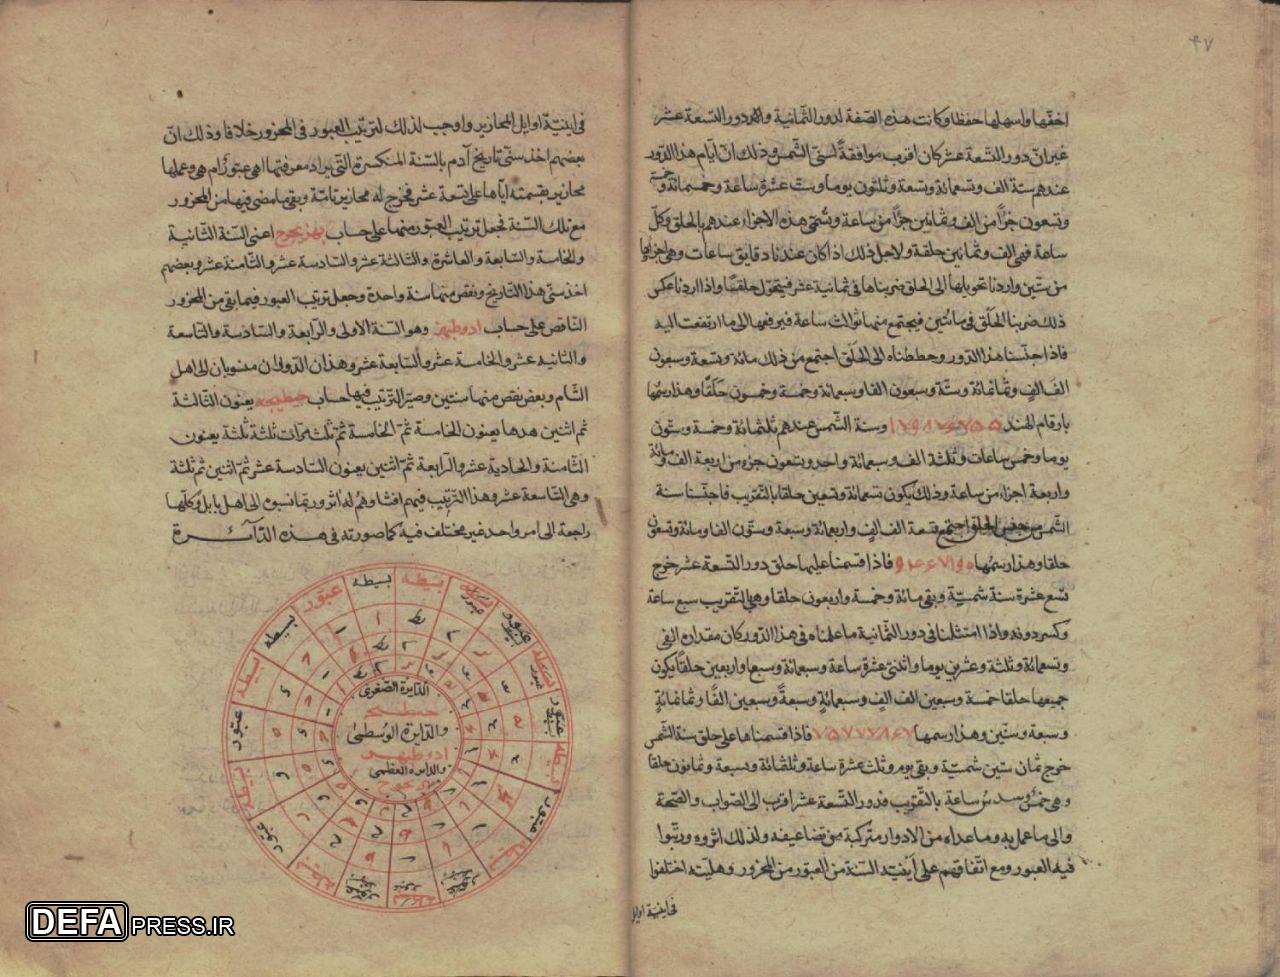 ٤٧
اخفها واسهلها حفظا وكانت هذه الصفة لدور الثمانية والدور التسعة عشر
غير ان دور التسعة عشر كان اقرب موافقةً لسنى الشمس وذلك ان ايام هذا الدور
عندهم ستة الف وتسعمائة وتسعة وثلثون يوما وست عشرة ساعة وخمسمائة وخمسة
وتسعون جزءًا من الف وثمانين جزءًا من ساعة وتسمّى هذه الاجزاء عندهم بالحلق وكلّ
ساعة فهى الف وثمانين حلقة ولاجل ذلك اذا كان عندنا دقايق ساعات وهى اجزاؤها
من ستّين واردنا تحويلها الى الحلق ضربناها فى ثمانية عشر فيتحوّل حلقًا واذا اردنا عكس
ذلك ضربنا الحلق فى مائتين فيجتمع منها ثوالث ساعة فيرفعها الى ما ارتفعت اليه
فاذا جنّسنا هذا الدور وحططناه الى الحلق اجتمع من ذلك مائة وتسعة وسبعون
الف الف وثمانمائة وستّة وسبعون الفا وسبعمائة وخمسة وخمسون حلقًا وهذا رسمها
بارقام الهند ١٧٩٨٧٦٧٥٥ وسنة الشمس عندهم ثلثمائة وخمسة وستّون
يوما وخمس ساعات وثلثة الف وسبعمائة واحد وتسعون جزء من اربعة الف ومائة
واربعة اجزاء من ساعة وذلك يكون تسعمائة وتسعين حلقا بالتقريب فاجنسنا سنة
الشمس من جنس الحلق اجتمع تسعة الف الف واربعمائة وسبعة وستّون الفا ومائة وتسعون
حلقا وهذا رسمها ٩٤٦٧١٩٠ فاذا قسمنا عليها حلق دور التسعة عشر خرج
تسع عشرة سنة شمسيّة وبقى مائة وخمسة واربعون حلقا وهى بالتقريب سبع ساعة
وكسر دونه واذا امتثلنا فى دور الثمانية ما عملناه فى هذا الدور كان مقداره الفى
وتسعمائة وثلثة وعشرين يوما واثنتى عشرة ساعة وسبعمائة وسبعا واربعين حلقًا يكون
جميعها حلقا خمسة وسبعين الف الف وسبعمائةٍ وسبعةً وسبعين الفًا وثمانمائة
وسبعة وستّين وهذا رسمها ٧٥٧٧٧٨٦٧ فاذا قسمناها على حلق سنة الشمس
خرج ثمان سنين شمسيّة وبقى يوم وثلث عشرة ساعة وثلثمائة وسبعة وثمانون حلقا
وهى خمس وسدس ساعة بالتقريب فدور التسعة عشر اقرب الى الصواب والصحة
والى ما عمل به وما عداه من الادوار متركبة من تضاعيفه ولذلك اثروه ورتّبوا
فيه العبور ومع اتفاقهم على اينيّة السنة من العبور من المحزور وهليته اختلفوا
فى اينيّة اوايل
فى اينيّة اوايل المحازير واوجب لذلك لترتيب العبور فى المحزور خلافا وذلك انّ
بعضهم اخذ سنّى تاريخ آدم بالسّنة المنكسرة التى يراد معرفتها اهى عبور ام هى وعملها
محازير بقسمته ايّاها على تسعة عشر فخرج له محازير تامّة وبقى ما مضى فيها من المحزور
مع تلك السّنة فجعل ترتيب العبور منها على حساب بهزيجوح اعنى السّنة الثانية
والخامسة والسّابعة والعاشرة والثالثة عشر والسّادسة عشر والثامنة عشر وبعضهم
اخذ سنى هذا التاريخ ونقص منها سنة واحدة وجعل ترتيب العبور فيما بقى من المحزور
الناقص على حساب ادوطبهز وهو السّنة الاولى والرّابعة والسّادسة والتّاسعة
والثانية عشر والخامسة عشر والسّابعة عشر وهذان الدوران منسوبان الى اهل
الشّام وبعض نقص منها سنتين وصيّر الترتيب فيها حساب جبطبج يعنون الثالثة
ثم اثنين بعدها يعنون الخامسة ثمّ ثلث مرّات ثلثة ثلثة يعنون
الثّامنة والحادية عشر والرّابعة ثمّ اثنين يعنون السّادسة عشر ثمّ اثنين ثم ثلثة
وهى التّاسعة عشر وهذا الترتيب فيهم افشا وهم له اثر وربما نسبوه الى اهل بابل وكلّها
راجعة الى امر واحد غير مختلف فيه كما صورته فى هذه الدّآئرة
بسيطة
بسيطة
عبور
بسيطة
بسيطة
عبور
بسيطة
عبور
بسيطة
عبور
بسيطة
عبور
بسيطة
عبور
الدايرة الصغرى
والدايرة الوسطى
ادوطبهز
والدايرة العظمى
DEFAPRESS.IR